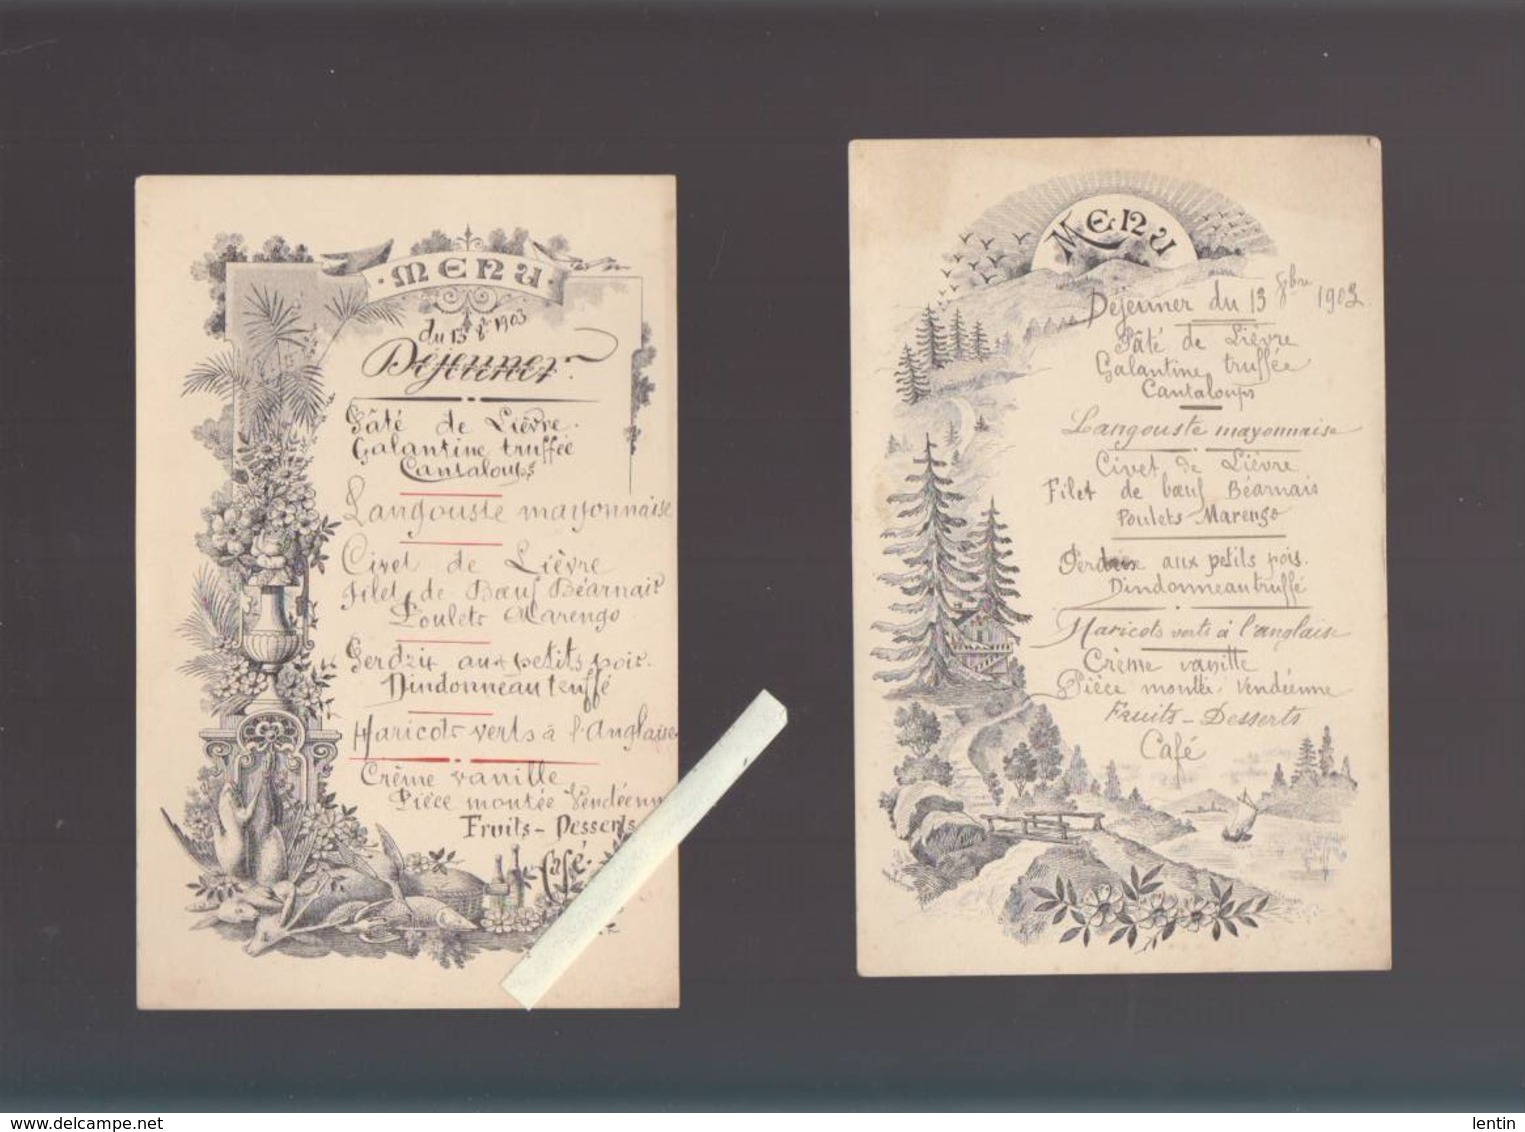 MENU
du 13 8e 1903
Déjeuner
Pâté de Lièvre.
Galantine truffée
Cantaloups
Langouste mayonnaise
Civet de Lièvre
Filet de Bœuf Béarnais
Poulets Marengo
Perdrix aux petits pois.
Dindonneau truffé
Haricots verts à l'Anglaise
Crème vanille
Pièce montée Vendéenn
Fruits - Desserts
Café.
MENU
Déjeuner du 13 8bre 1903
Pâté de Lièvre
Galantine truffée
Cantaloups
Langouste mayonnaise
Civet de Lièvre
Filet de bœuf Béarnais
Poulets Marengo
Perdrix aux petits pois.
Dindonneau truffé
Haricots verts à l'anglaise
Crème vanille
Pièce montée Vendéenne
Fruits - Desserts
Café
delcampe.net
lentin